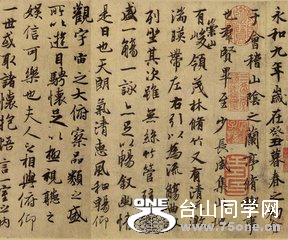 永和九年歲在癸丑暮春之初
于會稽山陰之蘭亭脩禊
也羣賢畢至少長咸集
崇山
有峻領茂林脩竹又有清流
湍暎帶左右引以為流觴曲
列坐其次雖無絲竹管弦
盛一觴一詠亦足以暢敘幽情
是日也天朗氣清惠風和暢仰
觀宇宙之大俯察品類之盛
所以遊目騁懷足以極視聽之
娛信可樂也夫人之相與俯仰
一世或取諸懷抱悟言一室之內
ONE
台山同学网
www.tsinfo.com.cn